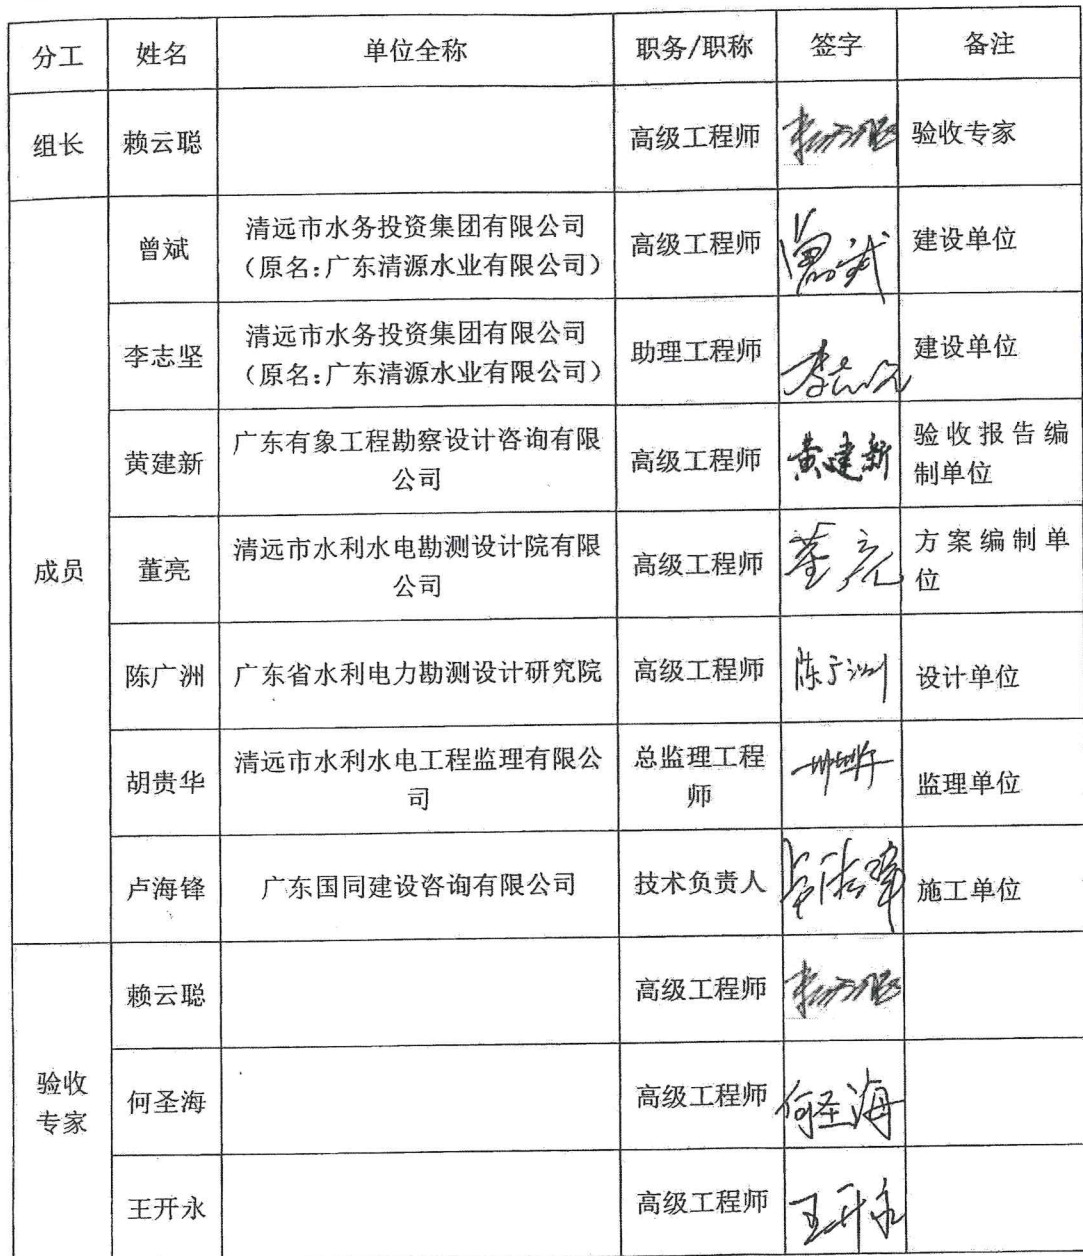 分工 姓名 单位全称 职务/职称 签字 备注
组长 赖云聪 高级工程师 验收专家
曾斌 清远市水务投资集团有限公司
（原名：广东清源水业有限公司） 高级工程师 曾斌 建设单位
李志坚 清远市水务投资集团有限公司
（原名：广东清源水业有限公司） 助理工程师 李志坚 建设单位
黄建新 广东有象工程勘察设计咨询有限
公司 高级工程师 黄建新 验收报告编
制单位
成员 董亮 清远市水利水电勘测设计院有限
公司 高级工程师 董亮 方案编制单
位
陈广洲 广东省水利电力勘测设计研究院 高级工程师 陈广洲 设计单位
胡贵华 清远市水利水电工程监理有限公
司 总监理工程
师 监理单位
卢海锋 广东国同建设咨询有限公司 技术负责人 施工单位
赖云聪 高级工程师
验收
专家 何圣海 高级工程师 何圣海
王开永 高级工程师 王开永